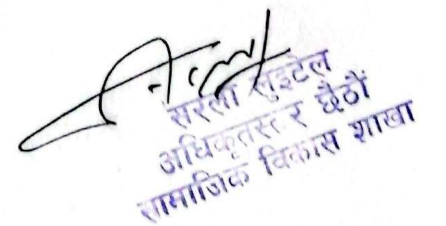 सरला सुइटेल
अधिकृतस्तर छैठौं
सामाजिक विकास शाखा